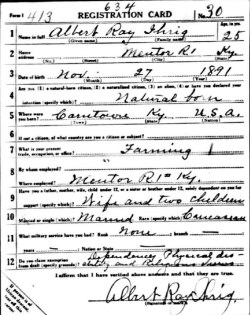 634
Form 1 413 REGISTRATION CARD No. 30
1 Name in full Albert Ray Ihrig Age, in yrs. 25
(Given name) (Family name)
2 Home address Mentor R1 Ky.
3 Date of birth Nov. 27 1891
(Month) (Day) (Year)
4 Are you (1) a natural-born citizen, (2) a naturalized citizen, (3) an alien, (4) or have you declared your
intention (specify which)? Natural born
5 Where were you born? Ky. U.S.A.
6 If not a citizen, of what country are you a citizen or subject?
7 What is your present trade, occupation, or office? Farming
8 By whom employed?
Where employed? Mentor R1 Ky.
9 Have you a father, mother, wife, child under 12, or a sister or brother under 12, solely dependent on you for
support (specify which)? Wife and two children
10 Married or single (which)? Married Race (specify which)? Caucasian
11 What military service have you had? Rank None
years Nation or State
12 Do you claim exemption from draft (specify grounds)? Dependency, Physical dis-
ability and Religious
I affirm that I have verified above answers and that they are true.
Albert Ray Ihrig